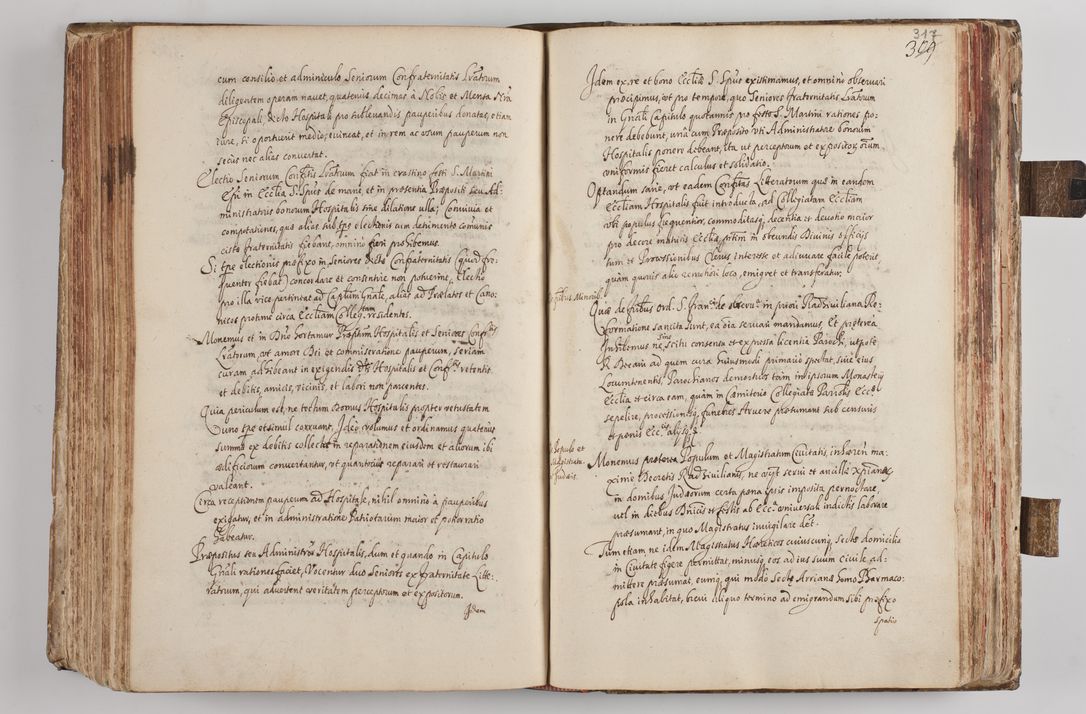 cum consilio, et adminiculo Seniorum Confraternitatis Lratrum
diligentem operam nauet, quatenus decimas à Nobis et Mensa Nra
Episcopali, dicto Hospitali pro subleuandis pauperibus donatas, etiam
iure, si oportuerit medio, euincat, et in rem ac usum pauperum non
secus nec alias conuertat.
Electio Seniorum Confrtis Lratrum fiat in crastino festi S. Martini
Epi in Ecclia S. Spus de mane, et in presentia Præpositi seu Ad-
ministratris bonorum Hospitalis sine dilatione ulla; Conuiuia et
computationes, quæ alias sub tpe electionis cum detrimento comunis
cistæ fraternitatis fiebant, omnino fieri prohibemus.
Si tpe electionis præfixo in Seniores dictæ Confraternitatis (quod fre-
quenter fiebat) concordare et consentire non potuerint, Electio
pro illa vice pertineat ad Caplum Gnale, alias ad Prælatos et Cano-
nicos proxime circa Eccliam Collegtam residentes.
Monemus et in Dno hortamur Præptum Hospitalis et Seniores Confrtis
Lratorum, ut amore Dei et commiseratione pauperum, seriam
curam adhibeant in exigendis Hospitalis et Confrtis retentis
et debitis, amicis, vicinis, et labori non parcentes.
Quia periculum est, ne tectum Domus Hospitalis propter vetustatem
uno tpe et simul corruant, Ideo volumus et ordinamus quatenus
summæ ex debitis collectæ in reparationem eiusdem et aliorum ibi
ædificiorum conuertantur, ut quantocius reparari et restaurari
valeant.
Circa receptionem pauperum ad Hospitale, nihil omnino à pauperibus
exigatur, et in administratione Patriotarum maior et potior ratio
habeatur.
Præpositus seu Administrator Hospitalis, dum et quando in Capitulo
Gnali rationes faciet, Vocentur duo Seniores ex fraternitate Litte-
ratorum, qui aduertent veritatem perceptorum et expositorum.
Idem
317
309
Idem ex re et bono Eccliæ S. Spus existimamus, et omnino obseruari
præcipimus, ut pro tempore, quo Seniores fraternitatis Lratrum
in Gnali Capitulo quotannis pro festo S. Martini rationes po-
nere debebunt, una cum Præposito uti Administratore bonorum
Hospitalis ponere debeant, ita ut perceptorum et expositor. orum.
uniformis fieret calculus et solidatio.
Optandum sane, ut eadem Confrtas Litteratorum quæ in eandem
Eccliam Hospitalis fuit introducta, ad Collegiatam Eccliam
ubi populus frequentior, commoditasq, decentia et deuotio maior
pro decore matricis Eccliæ, ptim in obeundis Diuinis officijs
tum et Processionibus Clerus interesse et adiuuare facile poterit
quàm quouis alio remotiori loco, emigret et transferatur.
Quæ de fribus ord. S. Franci de obseru. in priori Radziuiliana Re-
formatione sancita sunt, ea oia seruari mandamus, Et præterea
Inhibemus ne sine scitu consensu et expressa licentia Parochi, utpote
R. Decani ad quem cura huiusmodi primario spectat, siue eius
Locumtenentis, Parochianos demortuos tàm in ipsorum Monasterij
Ecclia et circa eam, quàm in Cæmiterio Collegiatæ Parrotis Eccæ
sepelire, processionesq, funebres struere præsumant sub censuris
et pœnis Eccis alijsq.
Populo et
Magistratu
Judæis.
Monemus præterea Populum et Magistratum Ciuitatis, inhæren ma-
xime Decretis Radziuilianis, ne vtq serui et ancillæ Xpianæ
in domibus Judæorum certa pœna ipsis imposita pernoctare,
uel in diebus Dnicis et festis ab Eccla vniuersali indictis laborare
præsumant, in quo Magistratus inuigilare det.
Tum etiam ne idem Magistratus Hæreticos cuiuscunq sectæ domicilia
in Ciuitate figere permittat, minusq eos ad ius suum ciuile ad-
mittere præsumat, eumq, qui modò Sectæ Arrianæ homo Pharmaco-
pola inhabitat, breui aliquo termino ad emigrandum sibi præfixo
spatio